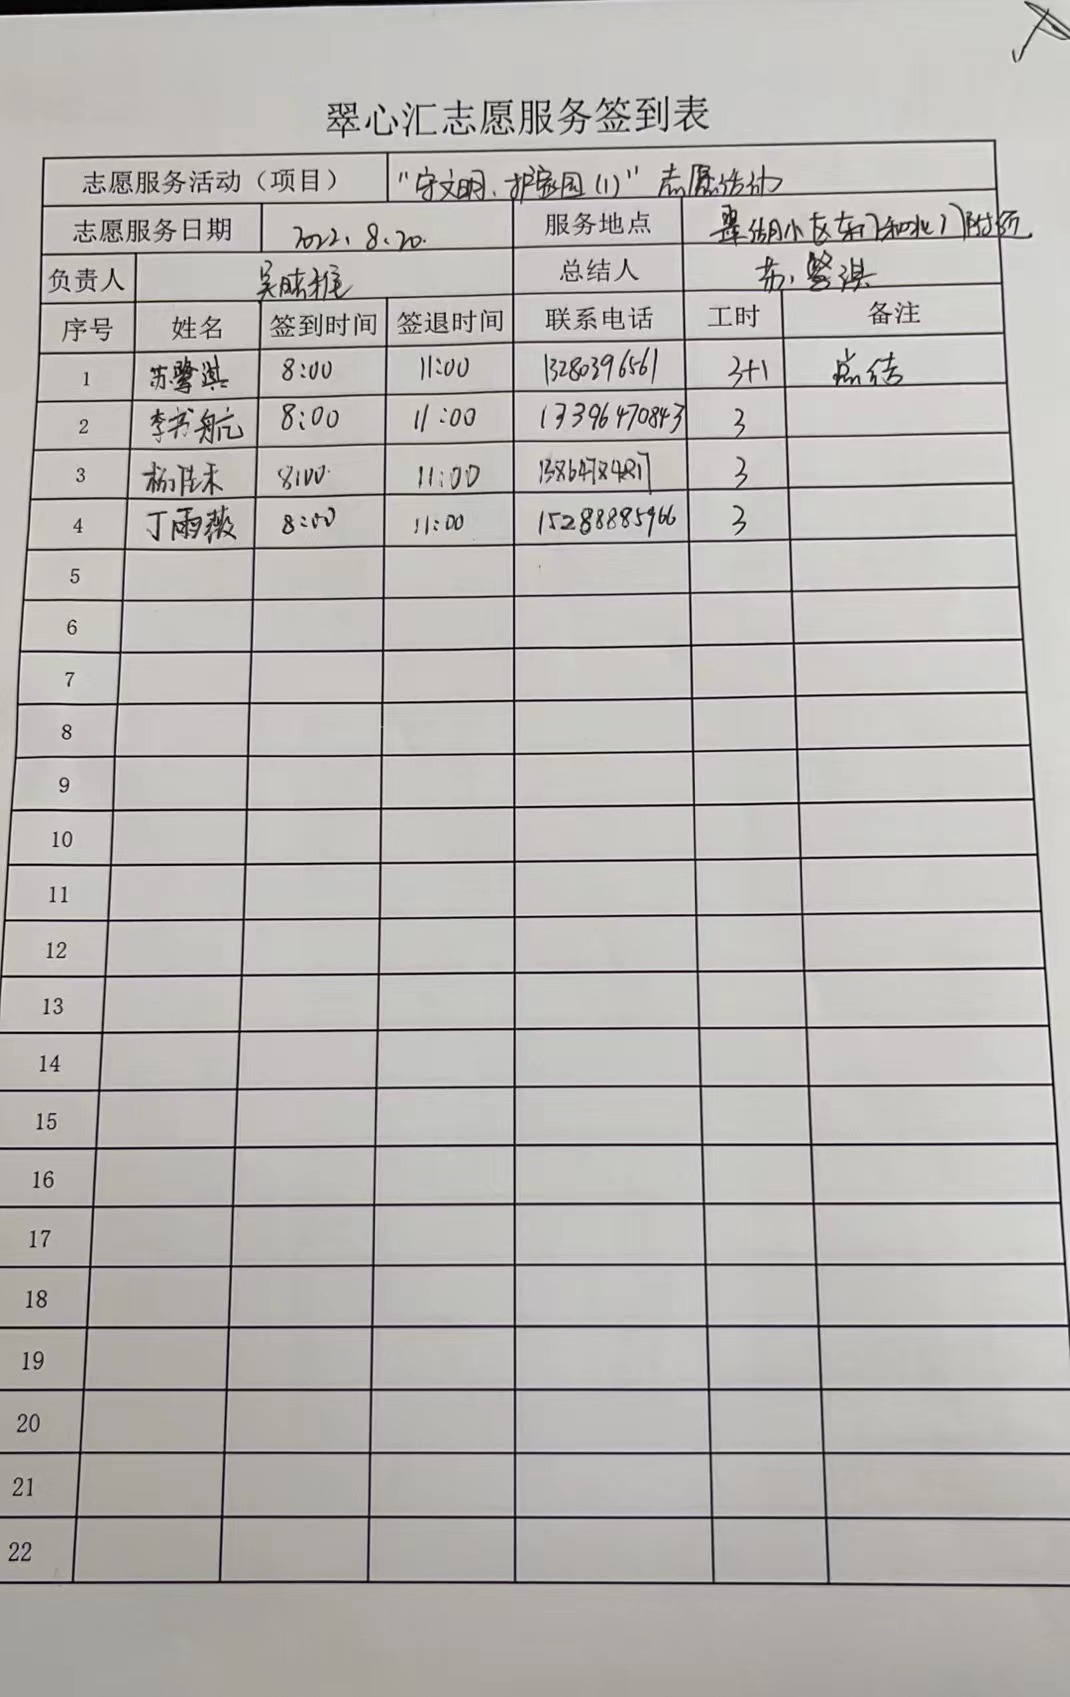 翠心汇志愿服务签到表
志愿服务活动（项目） “守文明、护家园（1）”志愿活动
志愿服务日期 2022.8.20. 服务地点 翠湖小区东门和北门附近
负责人 吴 总结人 苏鹥淇
序号 姓名 签到时间 签退时间 联系电话 工时 备注
1 苏鹥淇 8:00 11:00 13280396561 3+1 总结
2 李书航 8:00 11:00 13396470843 3
3 杨佳禾 8:00 11:00 3
4 丁雨薇 8:00 11:00 15288885966 3
5
6
7
8
9
10
11
12
13
14
15
16
17
18
19
20
21
22